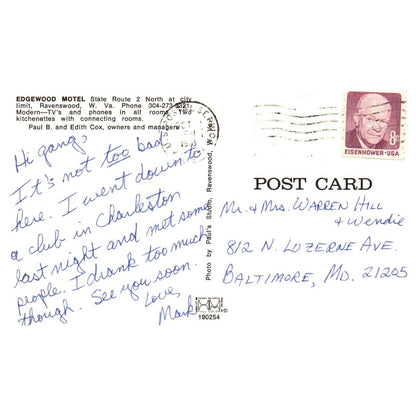 EDGEWOOD MOTEL State Route 2 North at city
limit, Ravenswood, W. Va. Phone 304-273-5321.
Modern—TV's and phones in all rooms. Two
kitchenettes with connecting rooms.
Paul B. and Edith Cox, owners and managers
Hi gang,
It's not too bad
here. I went down to
a club in Charleston
last night and met some
people. I drank too much
though. See you soon.
Love,
Mark
Photo by Paul's Studio, Ravenswood, W. Va.
HM
190254
8¢
EISENHOWER·USA
POST CARD
Mr. & Mrs. WARREN HILL
& Wendie
812 N. LUZERNE AVE.
BALTIMORE, MD. 21205